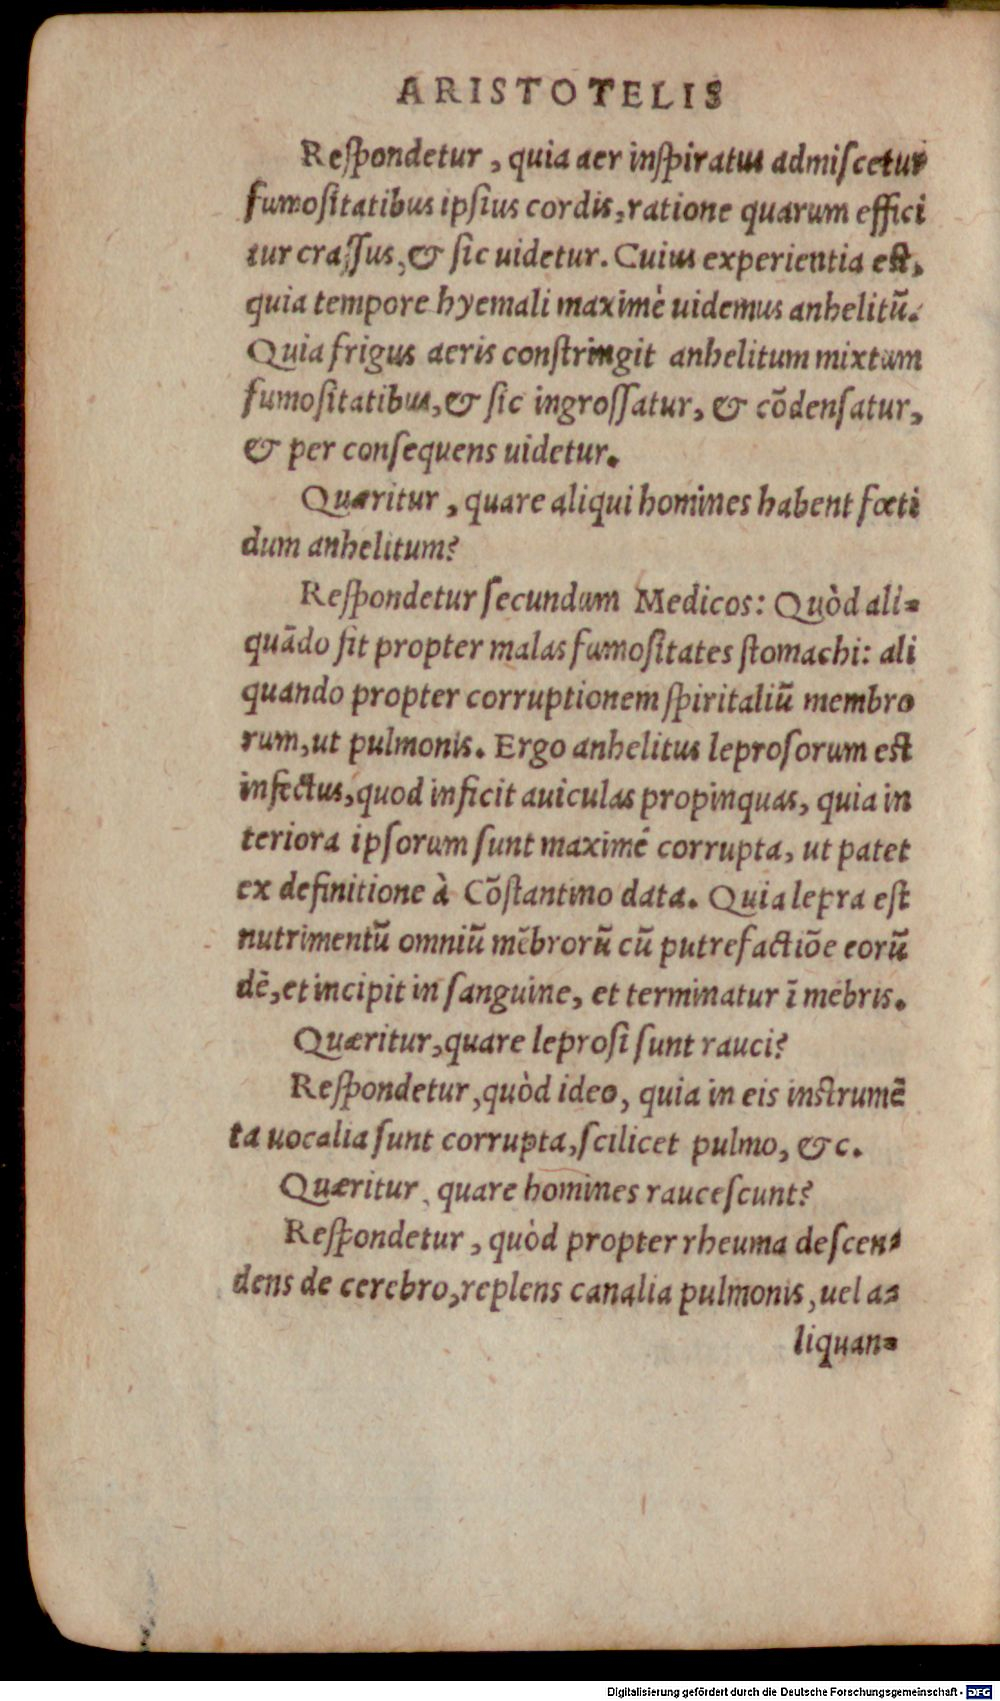 ARISTOTELIS
Reſpondetur, quia aer inſpiratus admiſcetur
fumoſitatibus ipſius cordis, ratione quarum effici
tur craſſus, & ſic uidetur. Cuius experientia eſt,
quia tempore hyemali maximè uidemus anhelitū.
Quia frigus aeris conſtringit anhelitum mixtum
fumoſitatibus, & ſic ingroſſatur, & cōdenſatur,
& per conſequens uidetur.
Quæritur, quare aliqui homines habent fœti
dum anhelitum?
Reſpondetur ſecundum Medicos: Quòd ali-
quādo fit propter malas fumoſitates ſtomachi: ali
quando propter corruptionem ſpiritaliū membro
rum, ut pulmonis. Ergo anhelitus leproſorum eſt
infectus, quod inficit auiculas propinquas, quia in
teriora ipſorum ſunt maximè corrupta, ut patet
ex definitione à Cōſtantino data. Quia lepra eſt
nutrimentū omniū mēbrorū cū putrefactiōe eorū
dē, et incipit in ſanguine, et terminatur ī mēbris.
Quæritur, quare leproſi ſunt rauci?
Reſpondetur, quòd ideo, quia in eis inſtrumē
ta uocalia ſunt corrupta, ſcilicet pulmo, &c.
Quæritur, quare homines rauceſcunt?
Reſpondetur, quòd propter rheuma deſcen-
dens de cerebro, replens canalia pulmonis, uel a-
liquan-
Digitalisierung gefördert durch die Deutsche Forschungsgemeinschaft - DFG